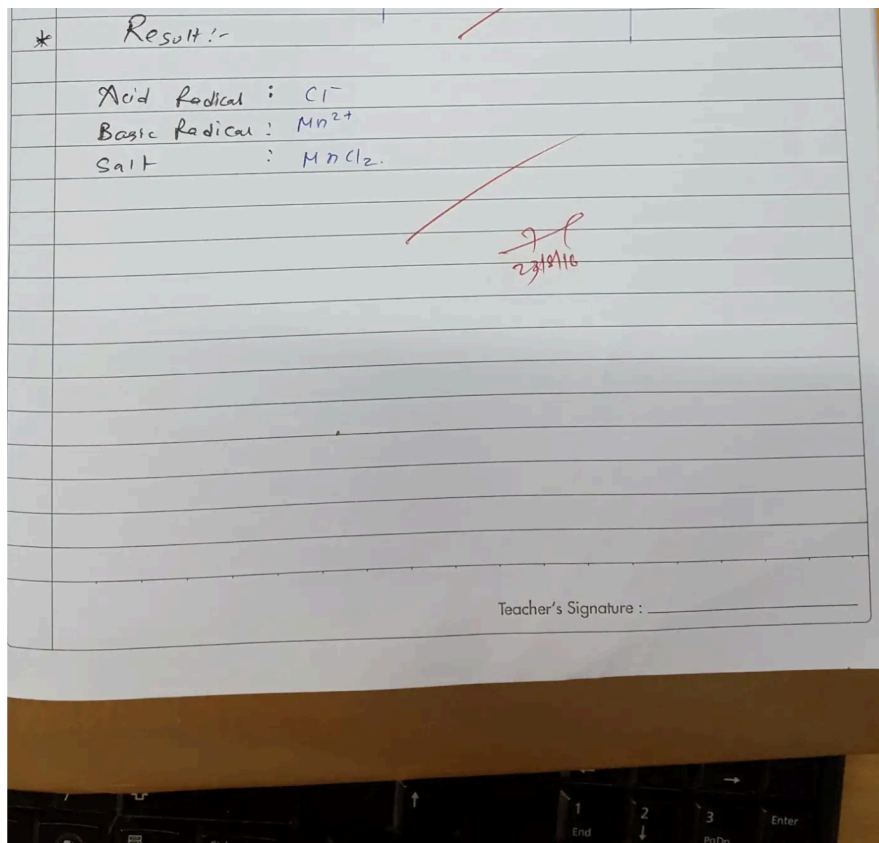 * Result:-
Acid Radical : Cl⁻
Basic Radical : Mn²⁺
Salt : MnCl₂.
23/8/16
Teacher's Signature :
↑
1
End
2
↓
3
PgDn
→
Enter